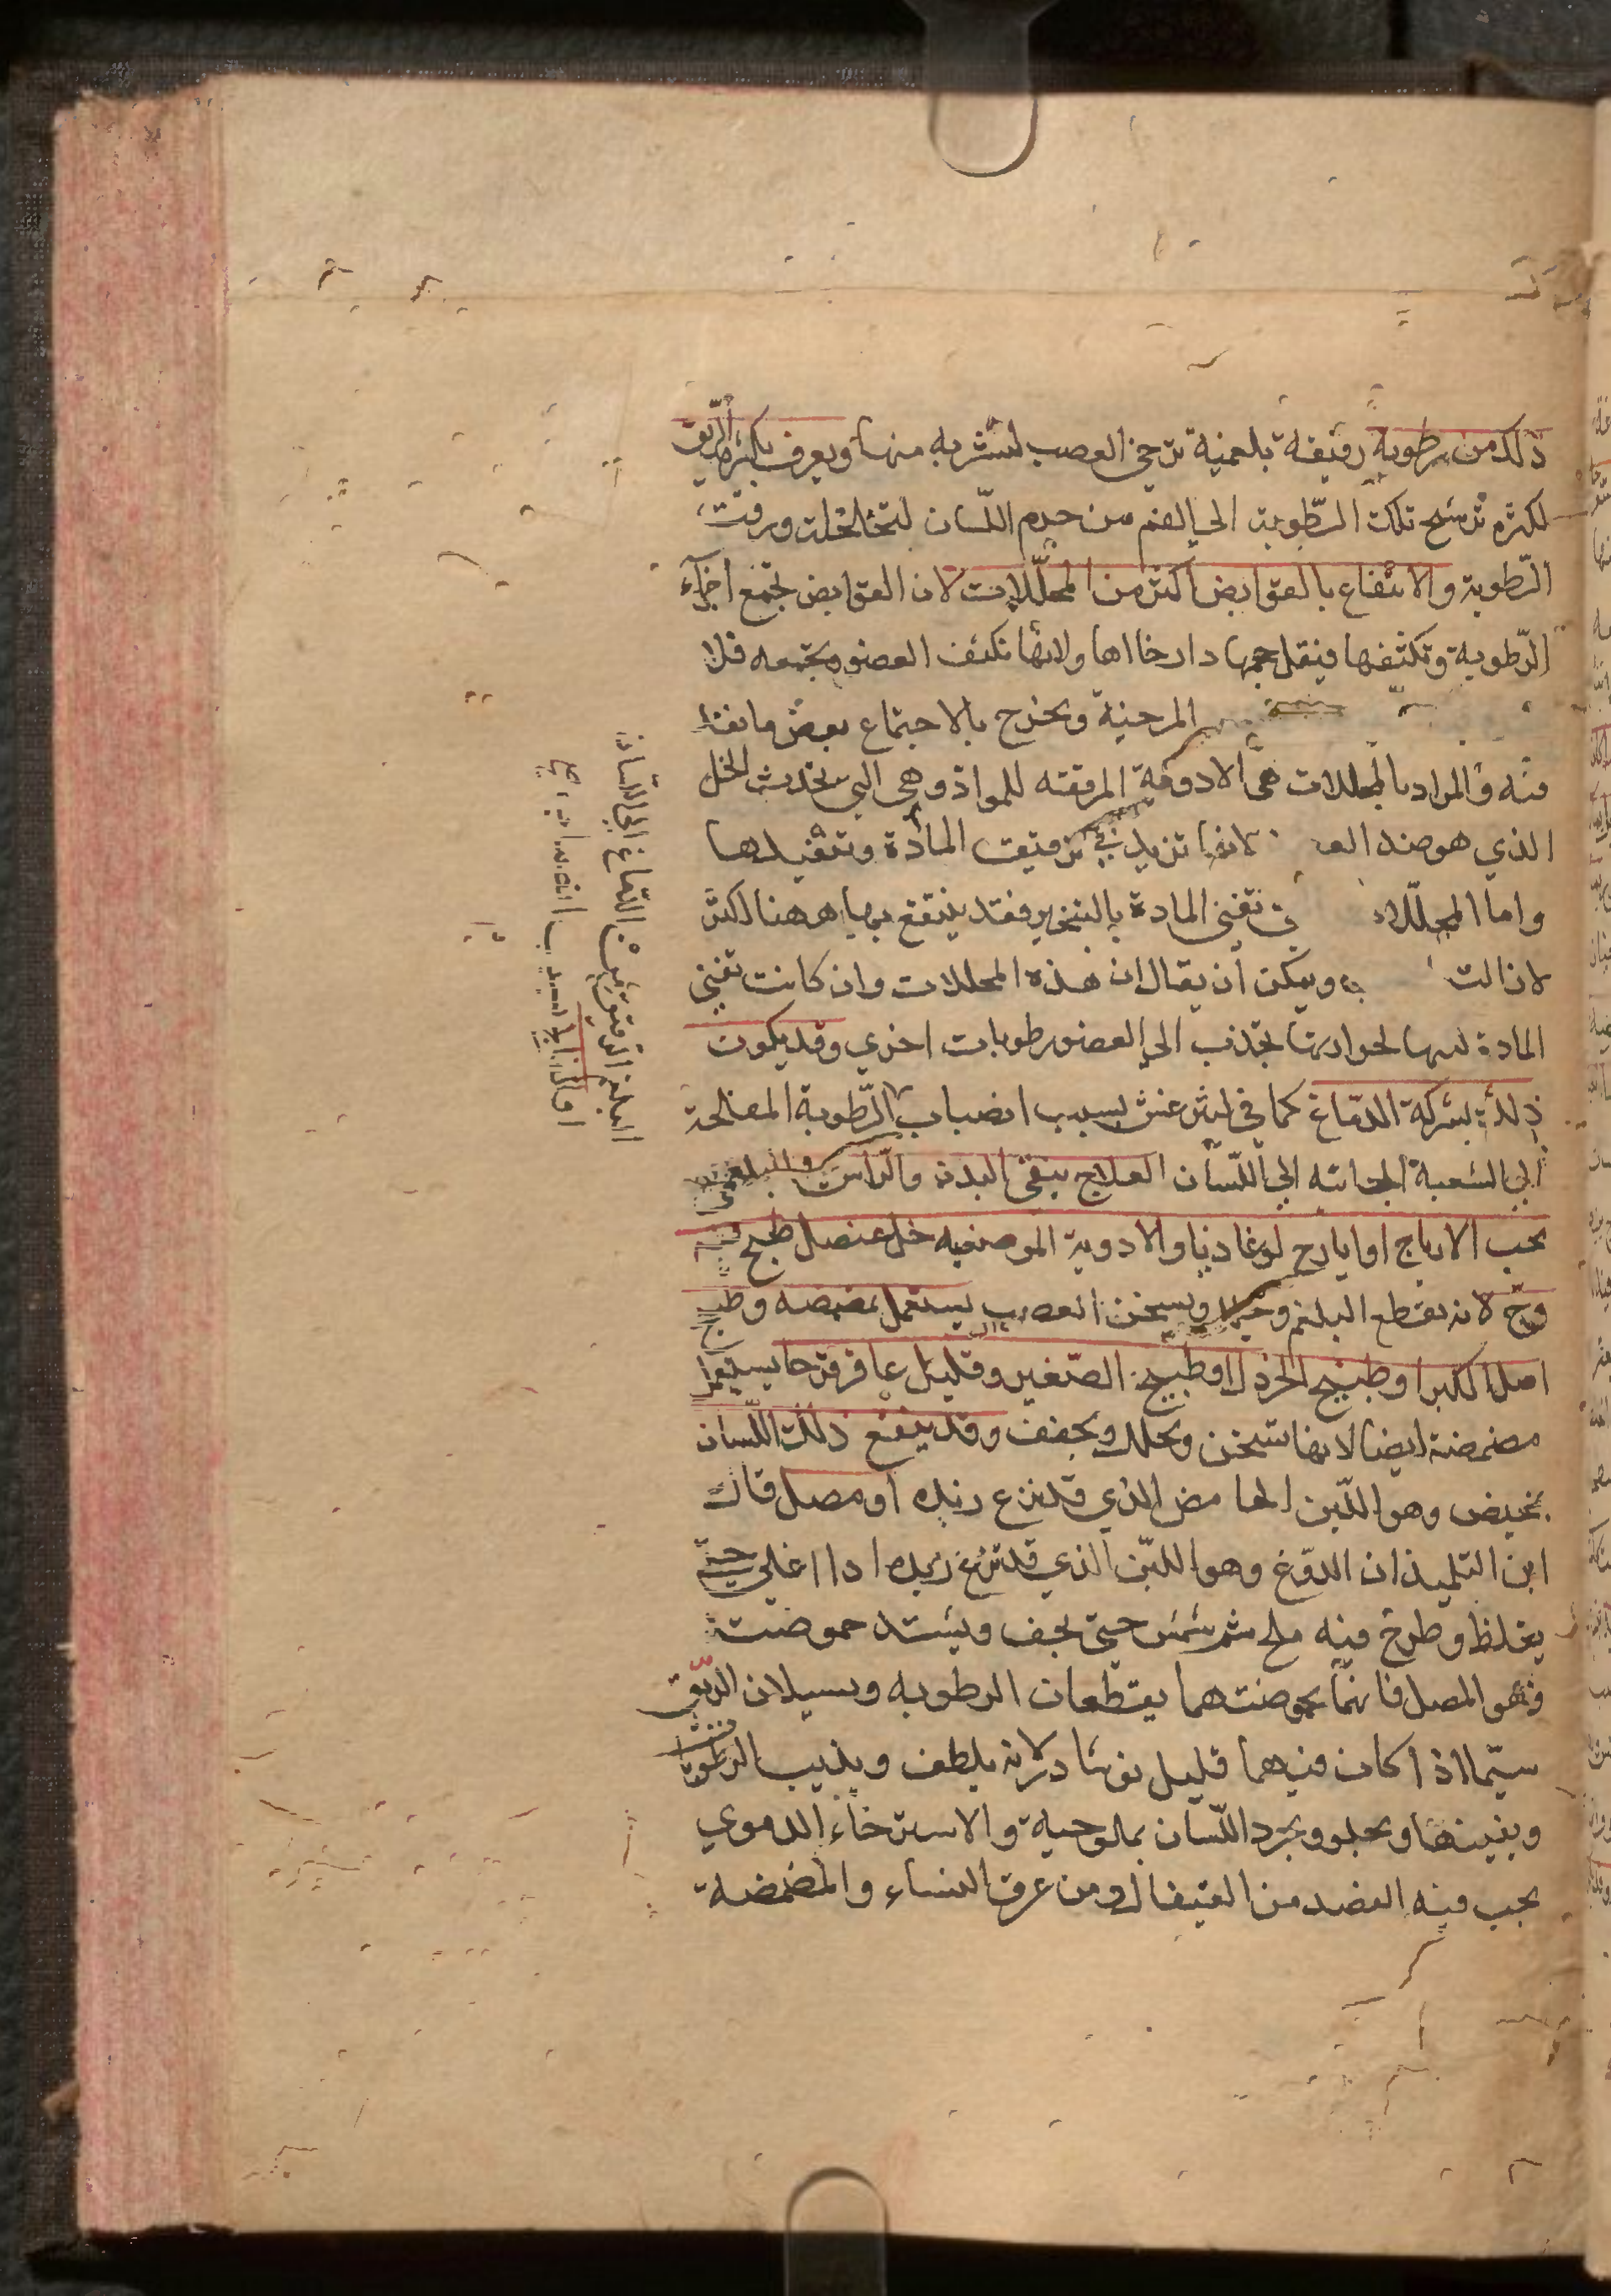 ذلك من رطوبة رقيقة بلغمية ترخي العصب لتشربه منها ويعرف بكثرة الريق
لكثرة ترشح تلك الرطوبة الى الفم من جرم اللسان لتخلخله ورقت
الرطوبة والانتفاع بالقوابض اكثر من المحللات لان القوابض تجمع اجزاء
الرطوبة وتكثفها فيقل حجمها وارخااها ولانها تكثف العضو وتجمعه فلا
المرخية ويخرج بالاجتماع بعض ما نفذ
فيه والمراد بالمحللات هي الادوية المرققة للمواد وهي التي تحدث الخل
الذي هو ضد لانها تزيد في ترقيق المادة وتنفيذها
واما تفني المادة بالتبخير فقد ينتفع بها ههنا اكثر
لان ويمكن ان يقال ان هذه المحللات وان كانت تفني
المادة لكنها لحرارتها تجذب الى العضو رطوبات اخرى وقد يكون
ذلك بشركة الدماغ كما في ليثرغس بسبب انصباب الرطوبة المفلجة
الى الشعبة الجائية الى اللسان العلاج ينقى البدن والراس
بحب الايارج او ايارج لوغاديا والادوية الموضعية خل عنصل طبخ فيه
وج لانه يقطع البلغم ويسخن العصب يستعمل مضمضة وطبيخ
اصل الكبر او طبيخ الخردل او طبيخ الصعتر وقليل عاقرقرحا يستعمل
مضمضة ايضا لانها تسخن وتحلل وتجفف وقد ينفع ذلك اللسان
بمخيض وهو اللبن الحامض الذي قد نزع زبده او مصل قال
ابن التلميذ ان الدوغ وهو اللبن الذي قد نزع زبده اذا اغلي حتى
يغلظ وطرح فيه ملح ثم شمس حتى يجف ويشتد حموضته
فهو المصل فانهما بحموضتهما يقطعان الرطوبة وسيلان الريق
سيما اذا كان فيهما قليل نوشادر لانه يلطف ويذيب الرطوبة
ويفنيها ويجلو ويجرد اللسان بملوحته والاسترخاء الدموي
يجب فيه الفصد من القيفال ومن عرق النساء والمضمضة